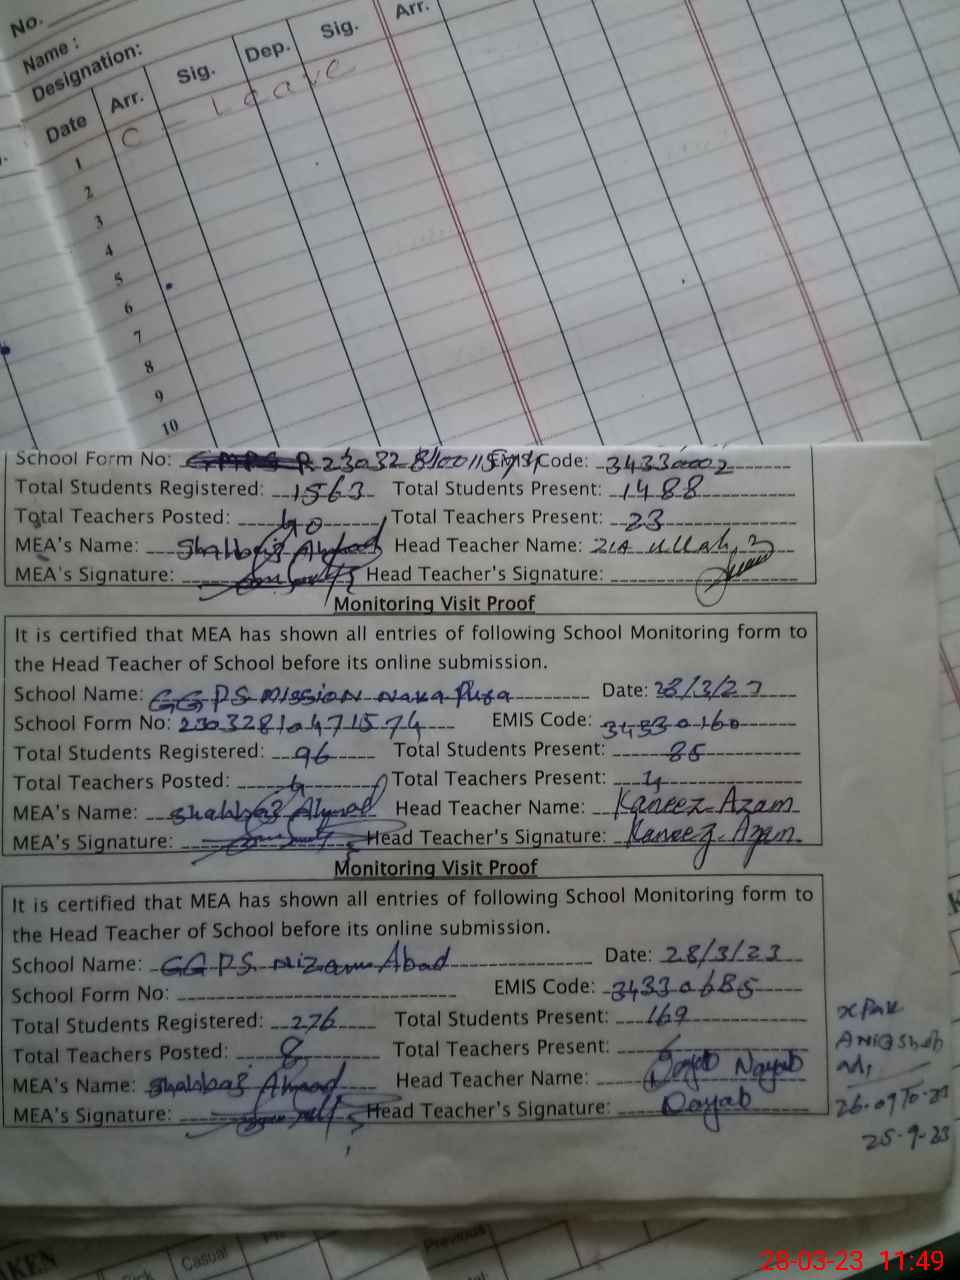 No.
Name :
Designation:
Date Arr. Sig. Dep. Sig. Arr.
C - Leave
1
2
3
4
5
6
7
8
9
10
School Form No: EMIS Code: 34330002
Total Students Registered: 1563 Total Students Present: 1488
Total Teachers Posted: 40 Total Teachers Present: 23
MEA's Name: Shahbaz Ahmad Head Teacher Name: Zia Ullah
MEA's Signature: Head Teacher's Signature:
Monitoring Visit Proof
It is certified that MEA has shown all entries of following School Monitoring form to
the Head Teacher of School before its online submission.
School Name: GGPS Mission Naya Pura Date: 28/3/23
School Form No: 23032810471574 EMIS Code: 34330160
Total Students Registered: 96 Total Students Present: 85
Total Teachers Posted: 4 Total Teachers Present: 4
MEA's Name: Shahbaz Ahmad Head Teacher Name: Kaneez Azam
MEA's Signature: Head Teacher's Signature: Kaneez Azam
Monitoring Visit Proof
It is certified that MEA has shown all entries of following School Monitoring form to
the Head Teacher of School before its online submission.
School Name: GGPS Nizam Abad Date: 28/3/23
School Form No: EMIS Code: 34330685
Total Students Registered: 276 Total Students Present: 169
Total Teachers Posted: 8 Total Teachers Present:
MEA's Name: Shahbaz Ahmad Head Teacher Name: Nayab
MEA's Signature: Head Teacher's Signature:
25-9-23
KEN
Casual
Previous
28-03-23 11:49